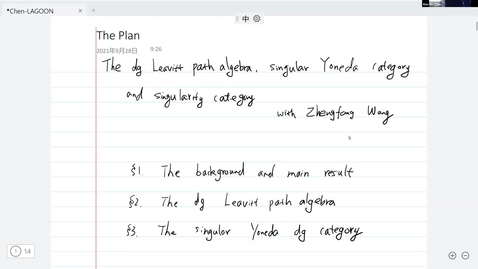 *Chen-LAGOON
中
The Plan
2021年9月28日 9:26
The dg Leavitt path algebra, singular Yoneda category
and singularity category
with Zhengfang Wang
§1. The background and main result
§2. The dg Leavitt path algebra
§3. The singular Yoneda dg category
14